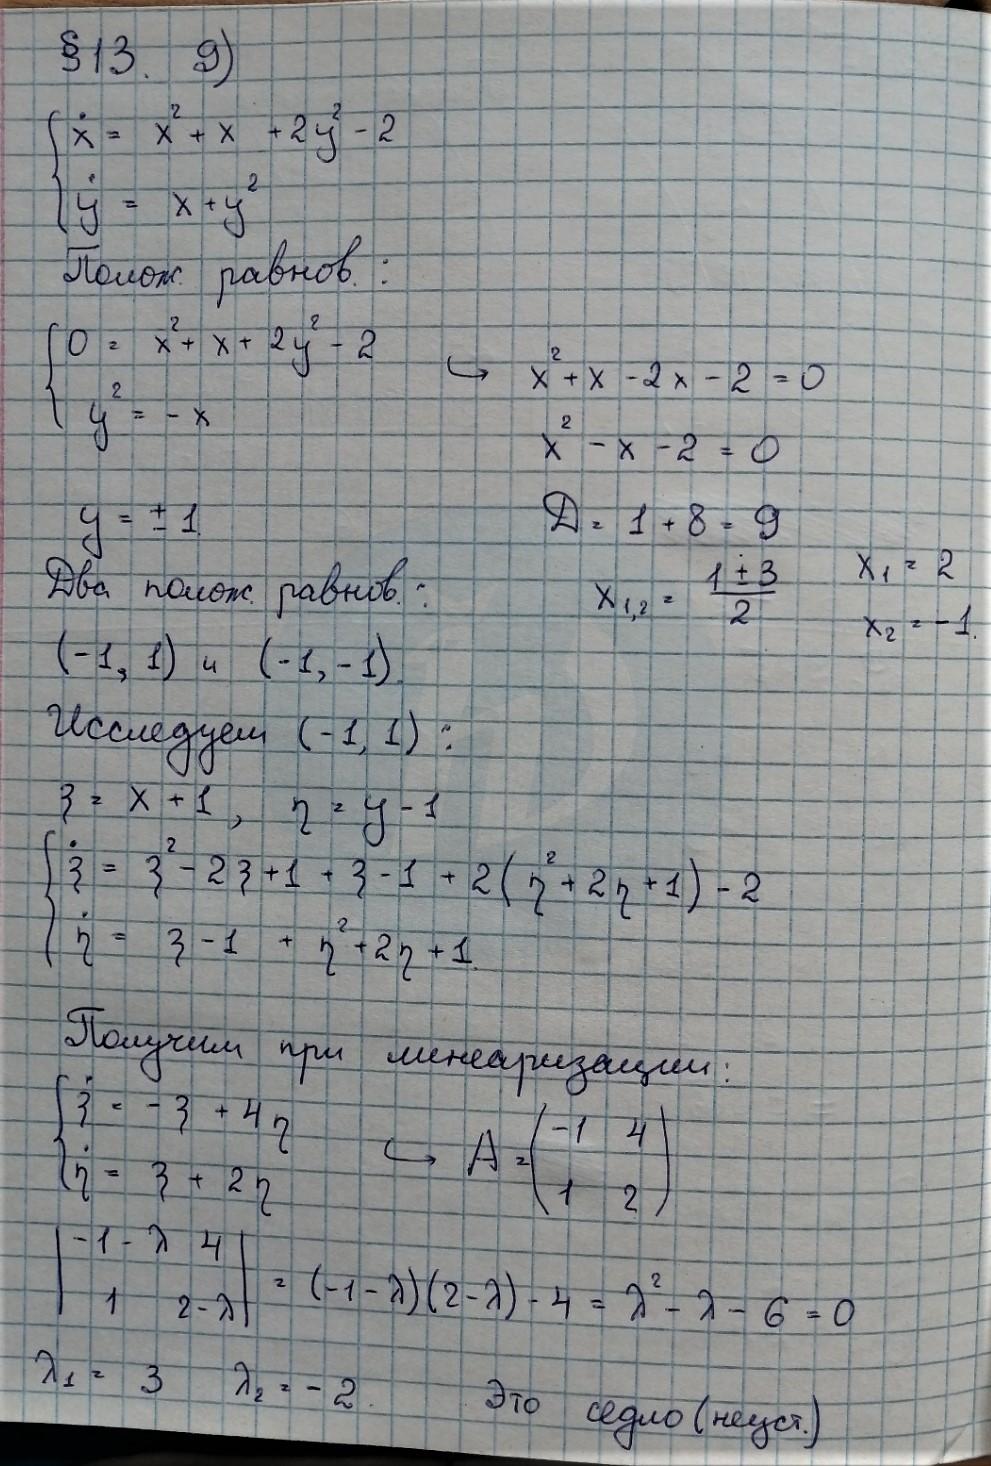 §13. 9)
ẋ = x² + x + 2y² - 2
ẏ = x + y²
Полож. равнов.:
0 = x² + x + 2y² - 2
y² = - x
↪ x² + x - 2x - 2 = 0
x² - x - 2 = 0
y = ± 1.
D = 1 + 8 = 9
x₁,₂ = (1 ± 3)/2
x₁ = 2
x₂ = -1.
Два полож. равнов.:
(-1, 1) и (-1, -1).
Исследуем (-1, 1):
ξ = x + 1, η = y - 1
ξ̇ = ξ² - 2ξ + 1 + ξ - 1 + 2(η² + 2η + 1) - 2
η̇ = ξ - 1 + η² + 2η + 1.
Получим при линеаризации:
ξ̇ = - ξ + 4η
η̇ = ξ + 2η
↪ A = (-1 4
1 2)
|-1 - λ 4
1 2-λ| = (-1 - λ)(2 - λ) - 4 = λ² - λ - 6 = 0
λ₁ = 3 λ₂ = -2. Это седло (неуст.)